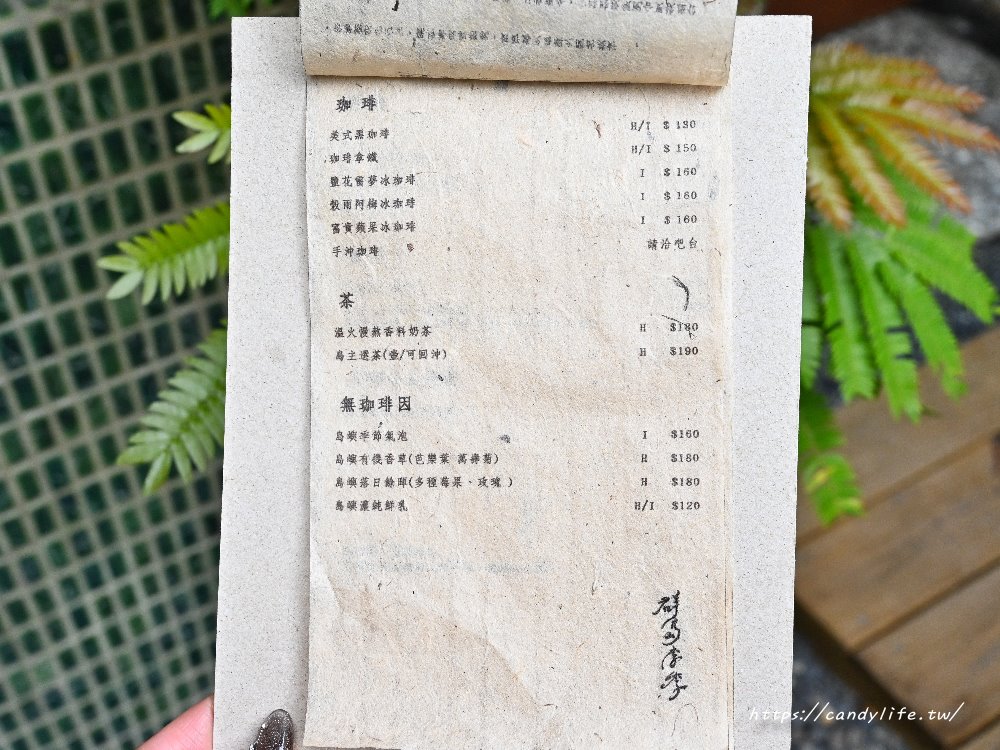 珈琲
美式黑珈琲 H/I $130
珈琲拿鐵 H/I $150
鹽花蜜夢冰珈琲 I $160
穀雨阿梅冰珈琲 I $160
富貴蘋果冰珈琲 I $160
手沖珈琲 請洽吧台
茶
溫火慢熬香料奶茶 H $180
島主選茶(壺/可回沖) H $190
無珈琲因
島嶼季節氣泡 I $160
島嶼有機香草(芭樂葉 萬壽菊) H $180
島嶼落日餘暉(多種莓果、玫瑰 ) H $180
島嶼濃純鮮乳 H/I $120
https://candylife.tw/